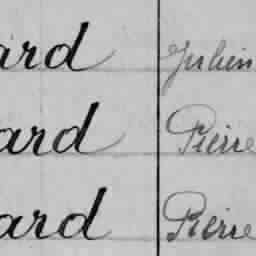 ard Julien
ard Pierre
ard Pierre